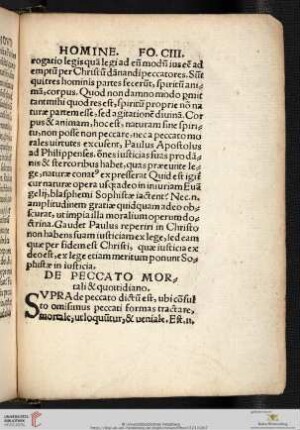 HOMINE. FO. CIII.
rogatio legis quā legi ad eū modū ius eē ad
emptū per Christū dānandi peccatores. Sūt
qui tres hominis partes fecerūt, spiritū ani
mā, corpus. Quod non damno modo pmit
tant mihi quod res est, spiritū proprie nō na
turæ partem esse, sed agitationē diuinā. Cor
pus & animam, hoc est, naturam sine spiri-
tu, non posse non peccare, nec a peccato mo
rales uirtutes excusent, Paulus Apostolus
ad Philippenses, ōnes iusticias suas pro dā-
nis & stercoribus habet, quas præ eunte le-
ge, naturæ conatꝰ expresserat Quid est igit
cur naturæ opera usqꝫ adeo in iniuriam Euā
gelij, blasphemi Sophistæ iactent? Nec. n.
amplitudinem gratiæ quidquam adeo ob-
scurat, ut impia illa moralium operum do-
ctrina. Gaudet Paulus reperiri in Christo
non habens suam iusticiam ex lege, sed eam
quæ per fidem est Christi, quæ iusticia ex
deo est, ex lege etiam meritum ponunt So-
phistæ in iusticia.
DE PECCATO MOR-
tali & quottidiano.
SVPRA de peccato dictū est, ubi cōsul
to omisimus peccati formas tractare,
mortale, ut loquūtur, & ueniale. Est. n.
UNIVERSITÄTS-
BIBLIOTHEK
HEIDELBERG